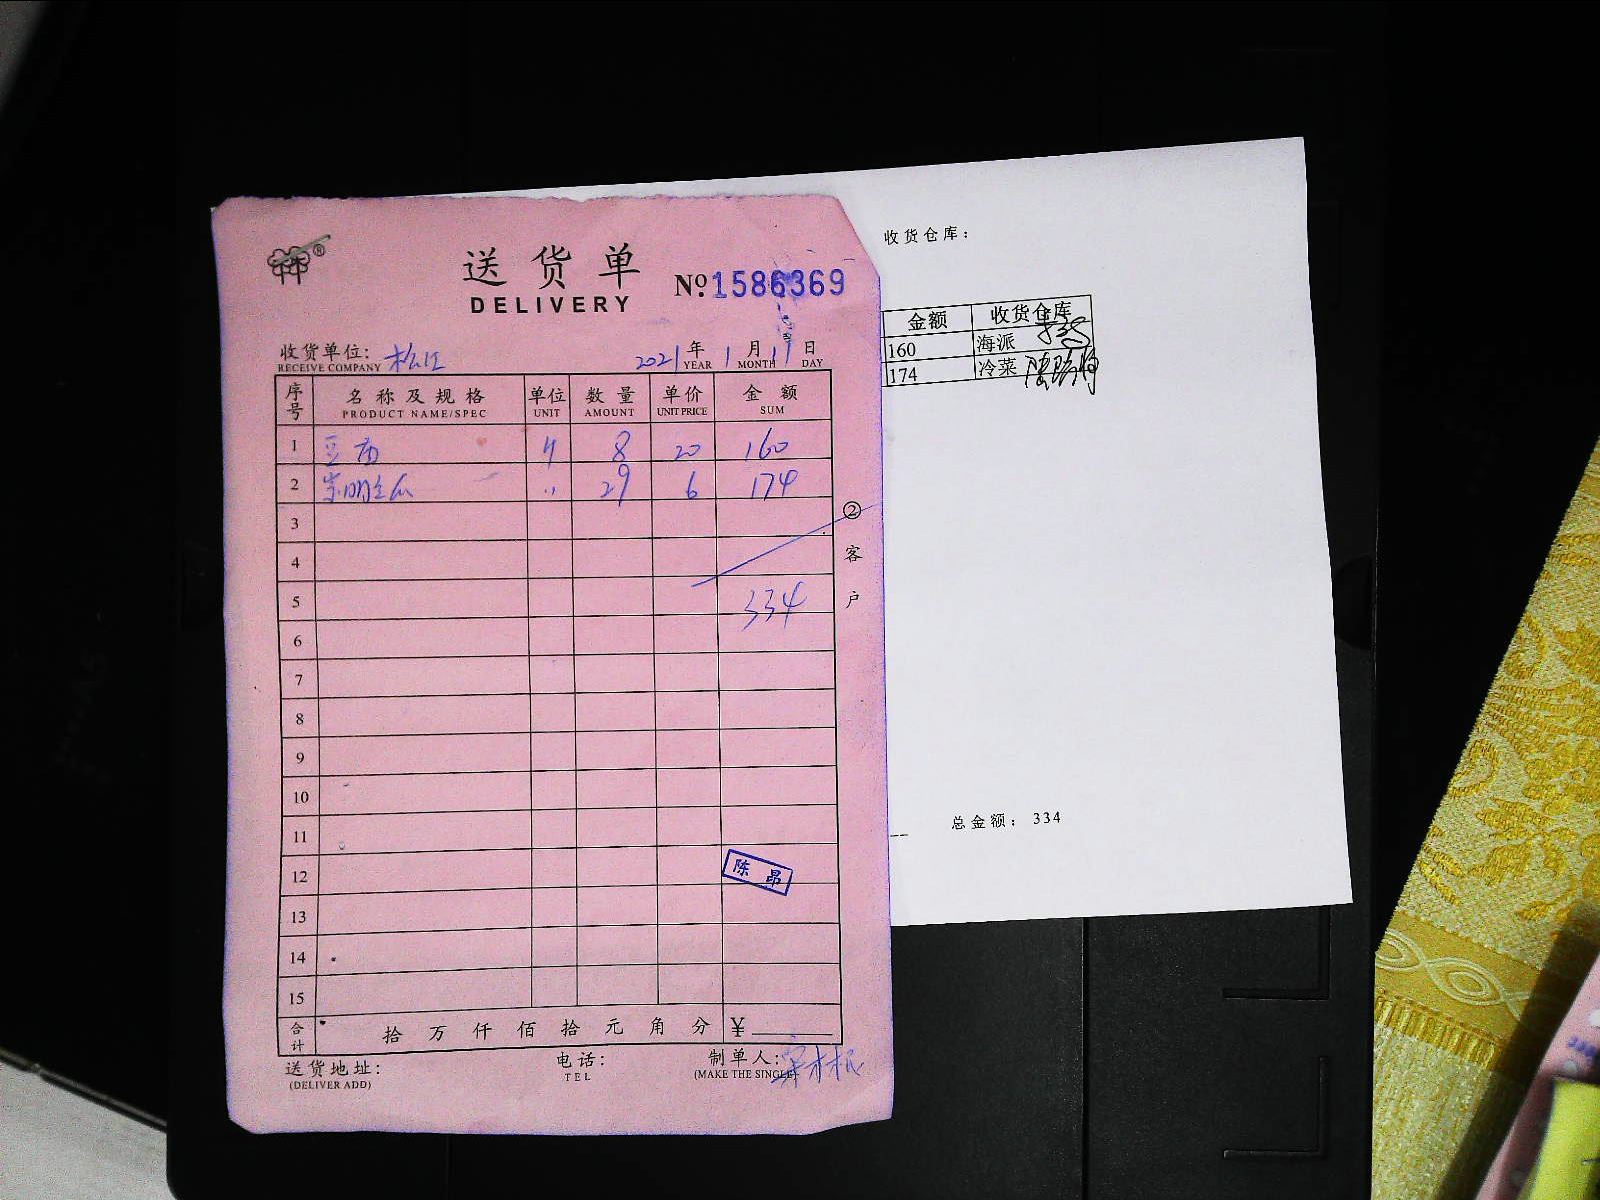 送货单
DELIVERY
№ 1586369
收货单位: 松江 2021年1月11日
RECEIVE COMPANY YEAR MONTH DAY
序号 名称及规格 单位 数量 单价 金额
PRODUCT NAME/SPEC UNIT AMOUNT UNIT PRICE SUM
1 豆 8 20 160
2 崇明 29 6 174
3
4
5 334
6
7
8
9
10
11
12
陈昂
13
14
15
合计 拾万仟佰拾元角分 ¥
送货地址: 电话: 制单人:
(DELIVER ADD) TEL (MAKE THE SINGLE)
②客户
收货仓库:
金额 收货仓库
160 海派
174 冷菜
总金额: 334